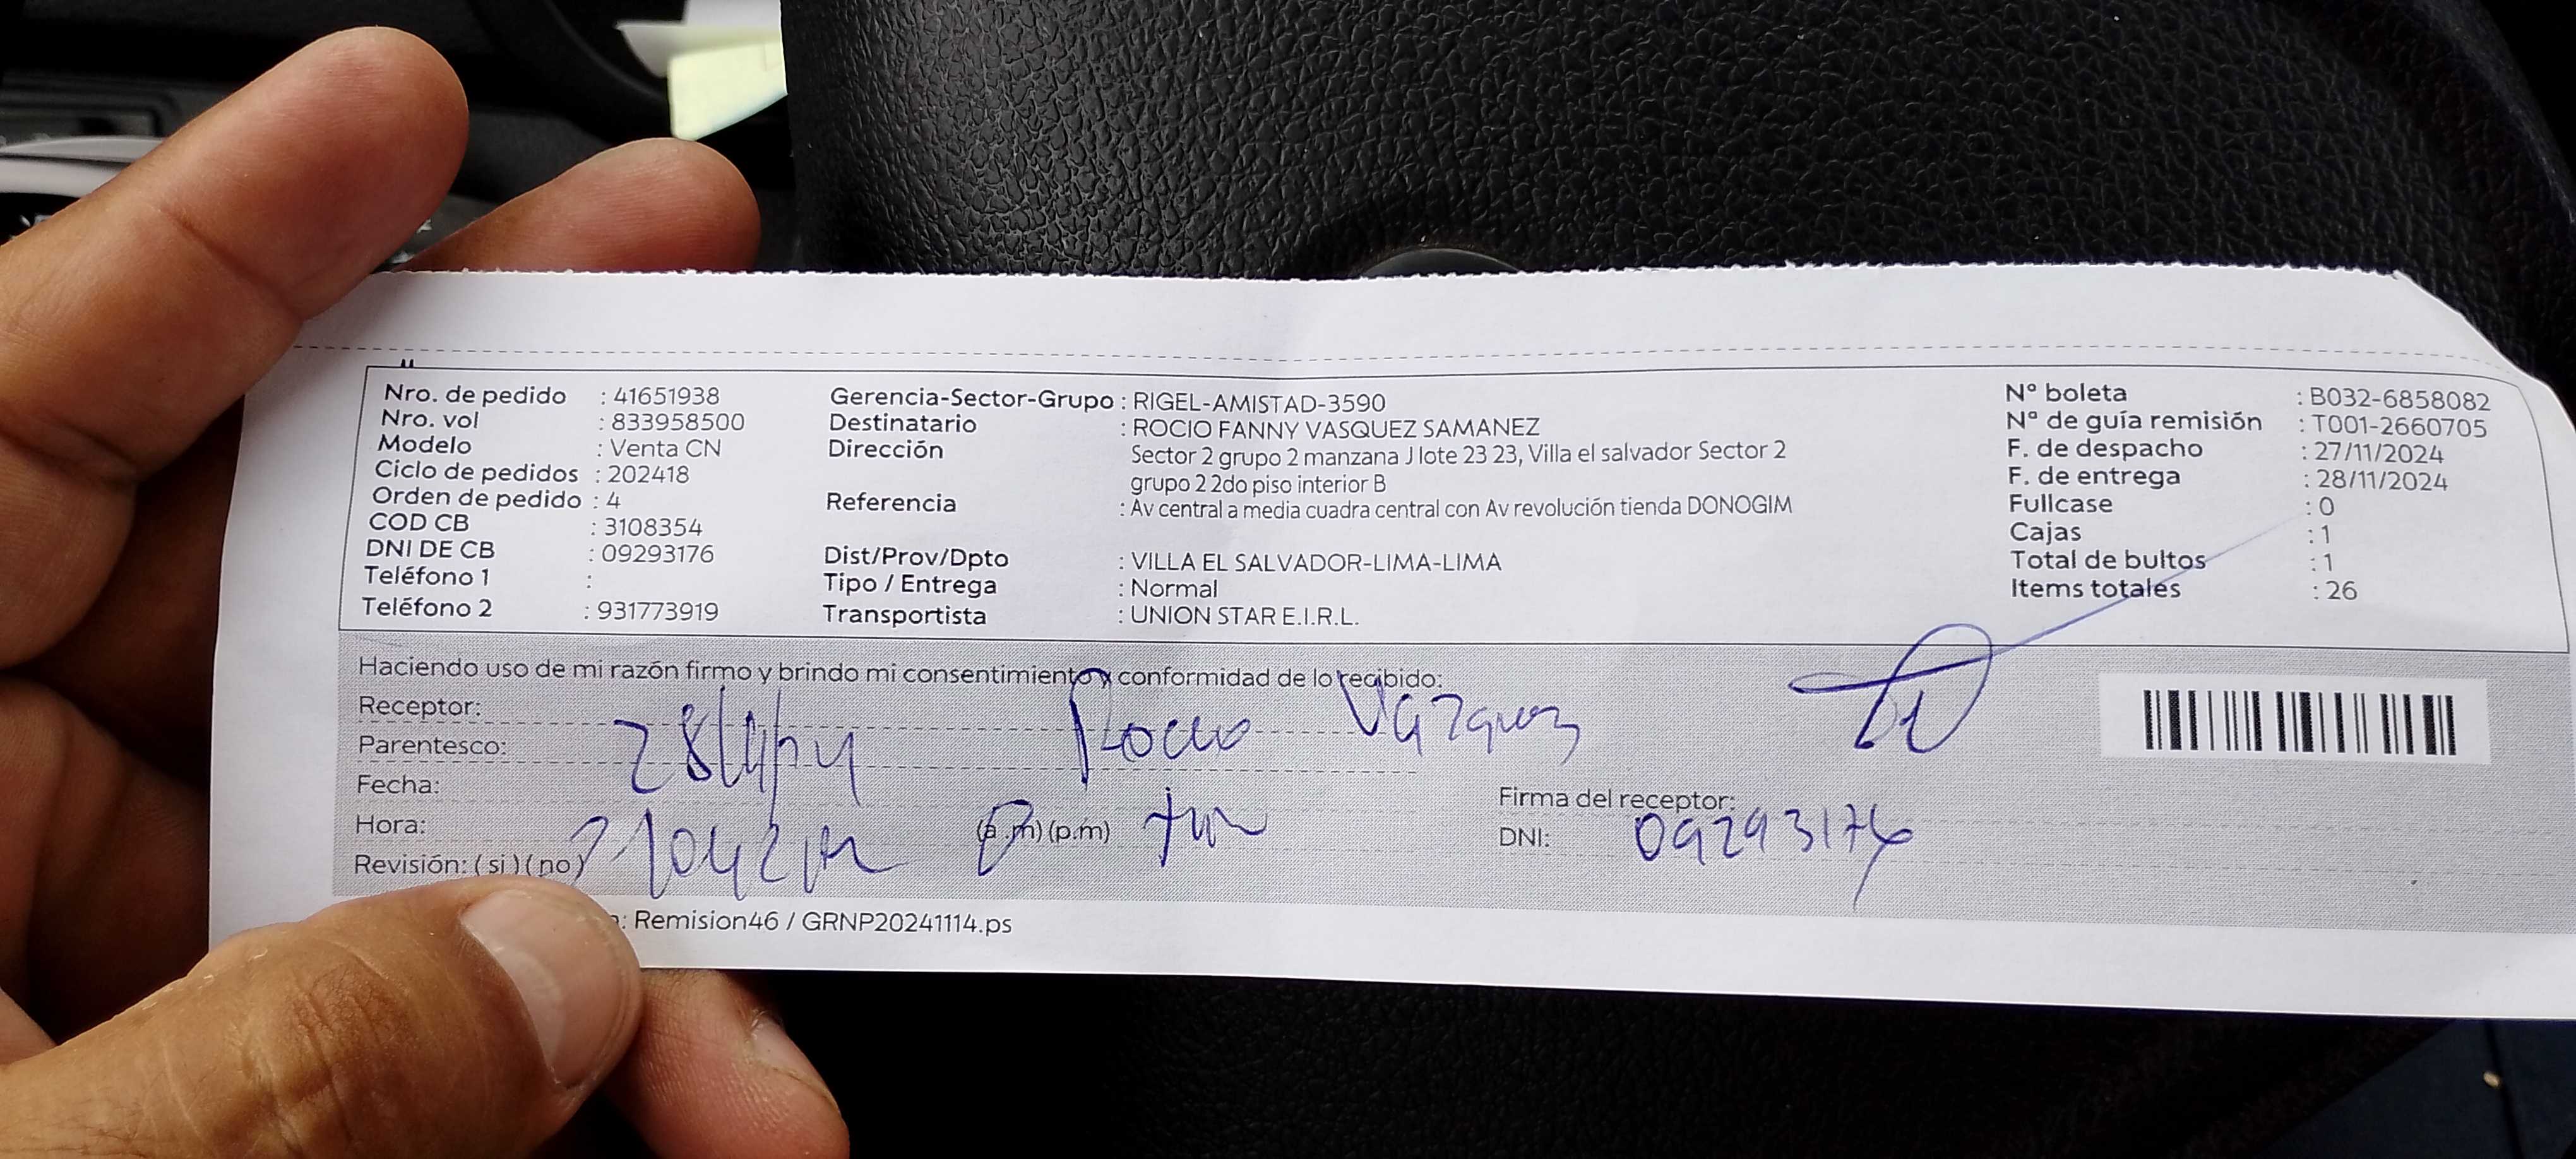 Nro. de pedido : 41651938
Nro. vol : 833958500
Modelo : Venta CN
Ciclo de pedidos : 202418
Orden de pedido : 4
COD CB : 3108354
DNI DE CB : 09293176
Teléfono 1 :
Teléfono 2 : 931773919
Gerencia-Sector-Grupo : RIGEL-AMISTAD-3590
Destinatario : ROCIO FANNY VASQUEZ SAMANEZ
Dirección Sector 2 grupo 2 manzana J lote 23 23, Villa el salvador Sector 2
grupo 2 2do piso interior B
Referencia : Av central a media cuadra central con Av revolución tienda DONOGIM
Dist/Prov/Dpto : VILLA EL SALVADOR-LIMA-LIMA
Tipo / Entrega : Normal
Transportista : UNION STAR E.I.R.L.
Nº boleta : B032-6858082
Nª de guía remisión : T001-2660705
F. de despacho : 27/11/2024
F. de entrega : 28/11/2024
Fullcase : 0
Cajas : 1
Total de bultos : 1
Items totales : 26
Haciendo uso de mi razón firmo y brindo mi consentimiento y conformidad de lo recibido:
Receptor: Rocio Vazquez
Parentesco:
Fecha:
Hora: (a.m) (p.m)
Revisión: ( si ) ( no )
Firma del receptor:
DNI: 09293176
: Remision46 / GRNP20241114.ps